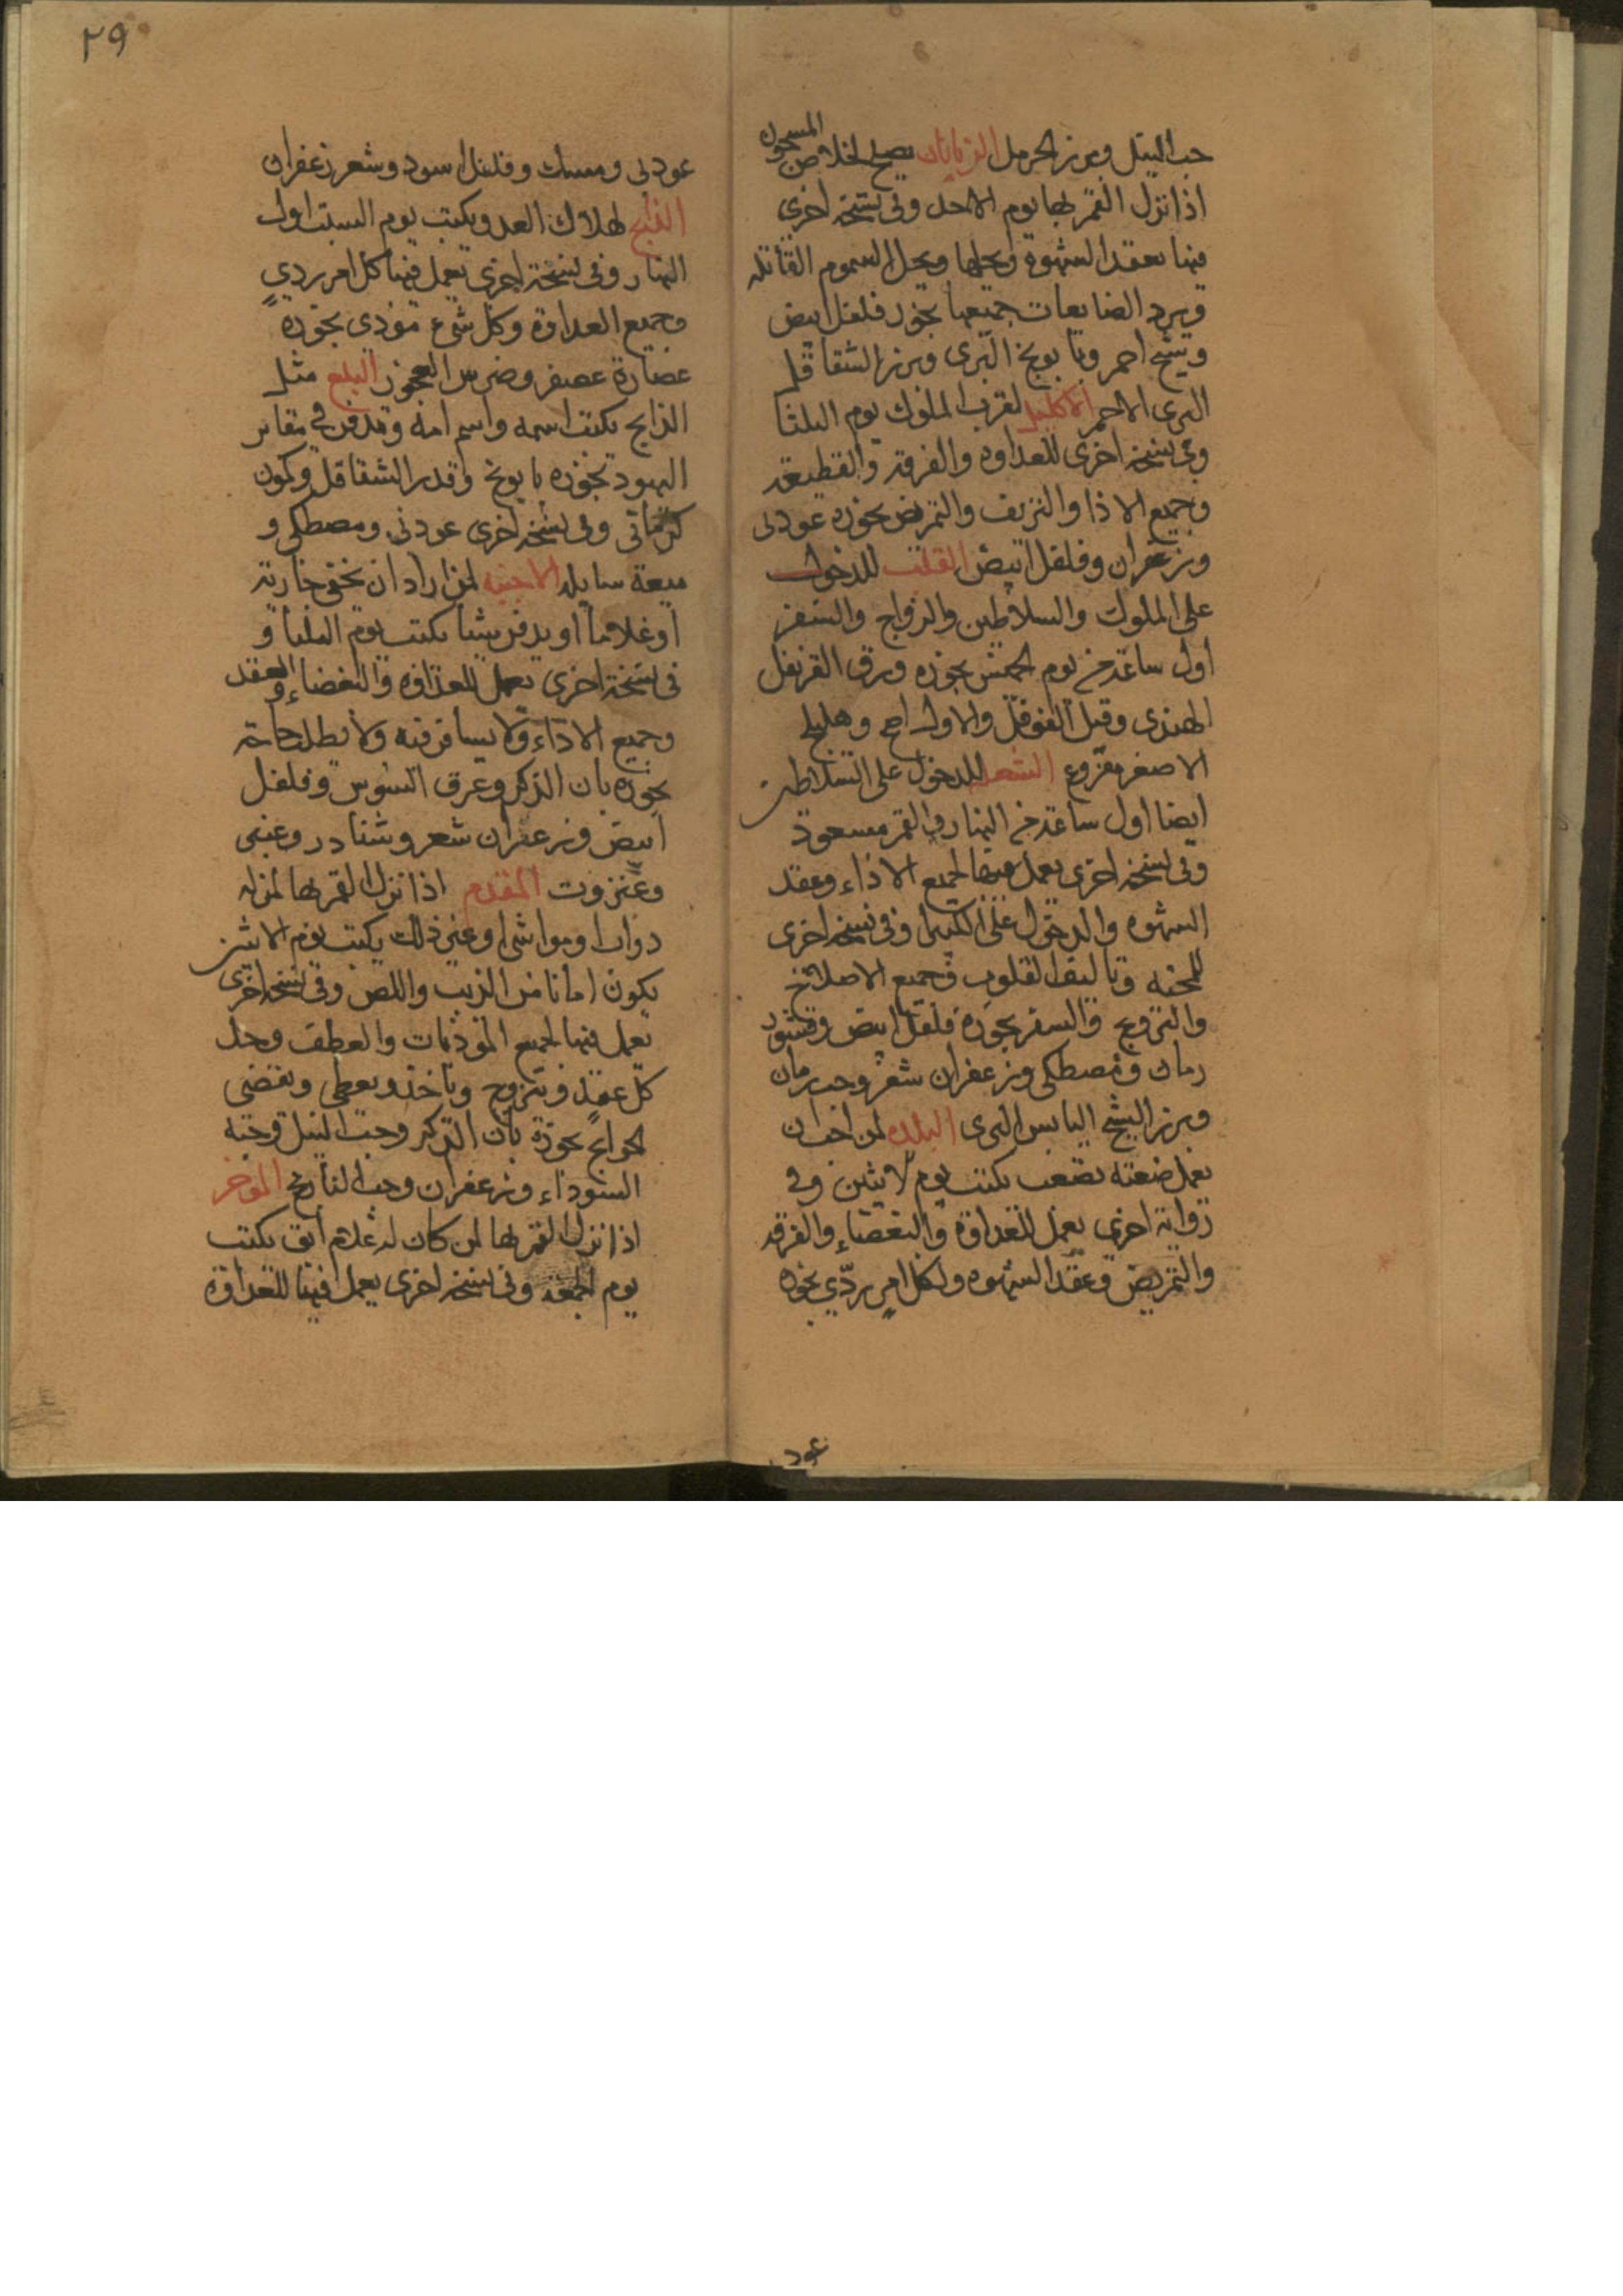 حب النيل وبزر الحرمل الزبانان يصلح لخلاص المسجون
اذا نزل القمر بها يوم الاحد وفي نسخة اخرى
فيها يعقد الشهوة ويحلها ويحل السموم القاتله
ويرد الضايعات جميعها بخور فلفل ابيض
وشيح احمر وبابونج البرى وبزر الشقاقل
البرى الاحمر الاكليل لقرب الملوك يوم الثلثا
وفي نسخة اخرى للعداوه والفرقه والقطيعه
وجميع الاذا والنزيف والتمريض بخوره عود ني
وزعفران وفلفل ابيض القلب للدخول
على الملوك والسلاطين والزواج والسفر
اول ساعة من يوم الخميس بخوره ورق القرنفل
الهندى وقيل الفوفل والاول اصح وهليلج
الاصفر منزوع الشعله للدخول على السلاطين
ايضا اول ساعة من النهار والقمر مسعود
وفي نسخة اخرى يعمل فيها لجميع الاذاء وعقد
الشهوه والدخول على الكبرا وفي نسخة اخرى
للمحبه وتاليف القلوب وجميع الاصلاح
والتزويج والسفر بخوره فلفل ابيض وقشور
رمان ومصطكى وزعفران شعر وحب رمان
وبزر الشيح اليابس البرى البلده لمن احب ان
يعمل ضيعته بقصب يكتب يوم لاثنين وفي
رواية اخرى يعمل للعداوة والبغضاء والفرقه
والتمريض وعقد الشهوه ولكل امر ردي بخوره
عود
٢٩
عود ني ومسك وفلفل اسود وشعر زعفران
الذابح لهلاك العدو ويكتب يوم السبت اول
النهار وفي نسخة اخرى يعمل فيها كل امر ردي
وجميع العداوة وكل شيء موذي بخوره
عصارة عصفر وضرس العجوز البلع مثل
الذابح يكتب اسمه واسم امه وتدفن في مقابر
اليهود بخوره بابونج وقدر الشقاقل وكمون
كرماني وفي نسخة اخرى عود ني ومصطكى و
ميعة سايله الاخبيه لمن اراد ان يخفي جارية
او غلاما او يدفن شيا يكتب يوم الثلثا و
في نسخة اخرى يعمل للعداوه والبغضاء والعقد
وجميع الاذاء ولا يسافر فيه ولا يطلب حاجة
بخوره بان الذكر وعرق السوس وفلفل
ابيض وزعفران شعر وشنادر وعنبر
وعنزروت المقدم اذا نزل القمر بها لمن له
دواب او مواشي او غير ذلك يكتب يوم الاثنين
يكون امانا من الذيب واللص وفي نسخة اخرى
يعمل فيها لجميع الموذيات والعطف وحل
كل عقد وتزوج وياخذ ويعطى ويقضى
الحوايج بخوره بان الذكر وحب النيل وحبة
السوداء وزعفران وحب النارنج الموخر
اذا نزل القمر بها لمن كان له غلام ابق يكتب
يوم الجمعه وفي نسخة اخرى يعمل فيها للعداوه